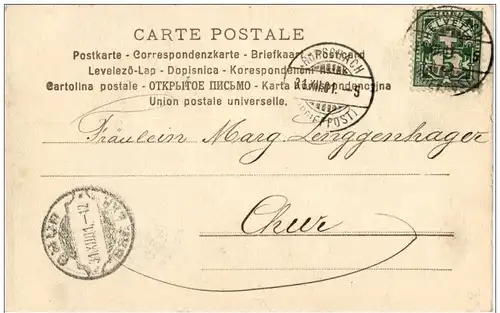 CARTE POSTALE
HELVETIA
Postkarte - Correspondenzkarte - Briefkaart - Postcard
Levelező-Lap - Dopisnica - Korespondenční lístek
Cartolina postale - ОТКРЫТОЕ ПИСЬМО - Karta Korespondencyjna
Union postale universelle.
RORSCHACH
31.XII.01.-9
(BRIEFPOST)
Fräulein Marg. Lenggenhager
Chur
CHUR
31.XII.01.-12